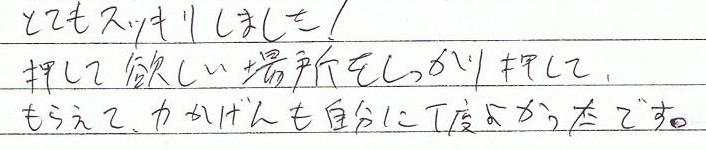 とてもスッキリしました!
押して欲しい場所をしっかり押して、
もらえて、力かげんも自分に丁度よかったです。